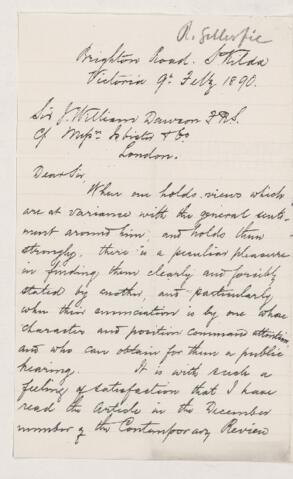 R. Gillespie
Brighton Road. St Kilda
Victoria 9th Feby 1890.
Sir J. William Dawson F.R.S.
C/ Messrs Isbister & Co
London.
Dear Sir,
When one holds views which
are at variance with the general senti-
ment around him, and holds them
strongly, there is a peculiar pleasure
in finding them clearly and forcibly
stated by another, and particularly
when their enunciation is by one whose
character and position command attention
and who can obtain for them a public
hearing. It is with such a
feeling of satisfaction that I have
read the Article in the December
number of the Contemporary Review